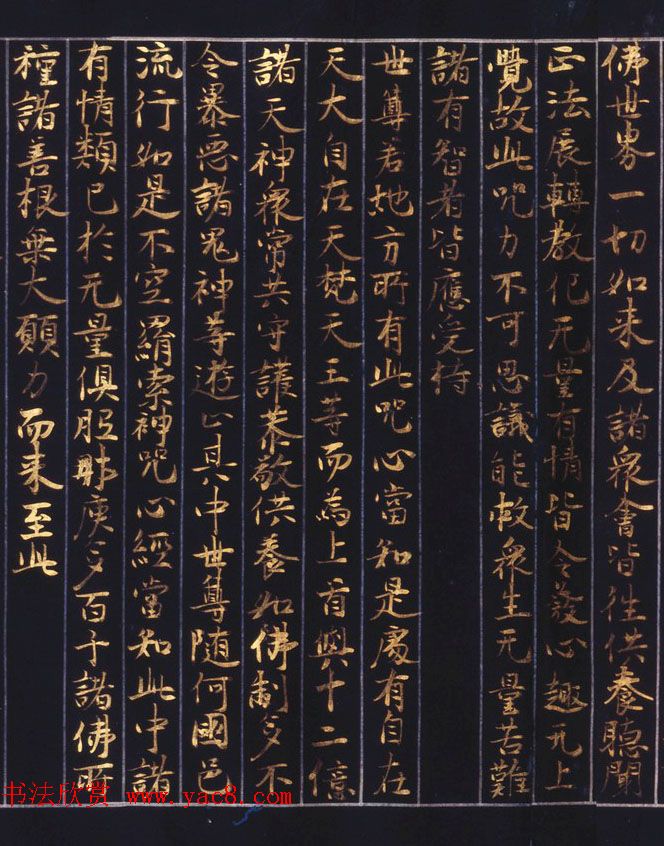 佛世界一切如来及諸衆會皆往供養聽聞
正法展轉教化无量有情皆令發心趣无上
覺故此呪力不可思議能救衆生无量苦難
諸有智者皆應受持
世尊若地方所有此呪心當知是處有自在
天大自在天梵天王等而為上首與十二億
諸天神衆常共守護恭敬供養如佛制多不
令暴惡諸鬼神等遊止其中世尊隨何國邑
流行如是不空羂索神呪心經當知此中諸
有情類已於无量俱胝那庾多百千諸佛所
種諸善根乗大願力而来至此
书法欣赏 www.yac8.com